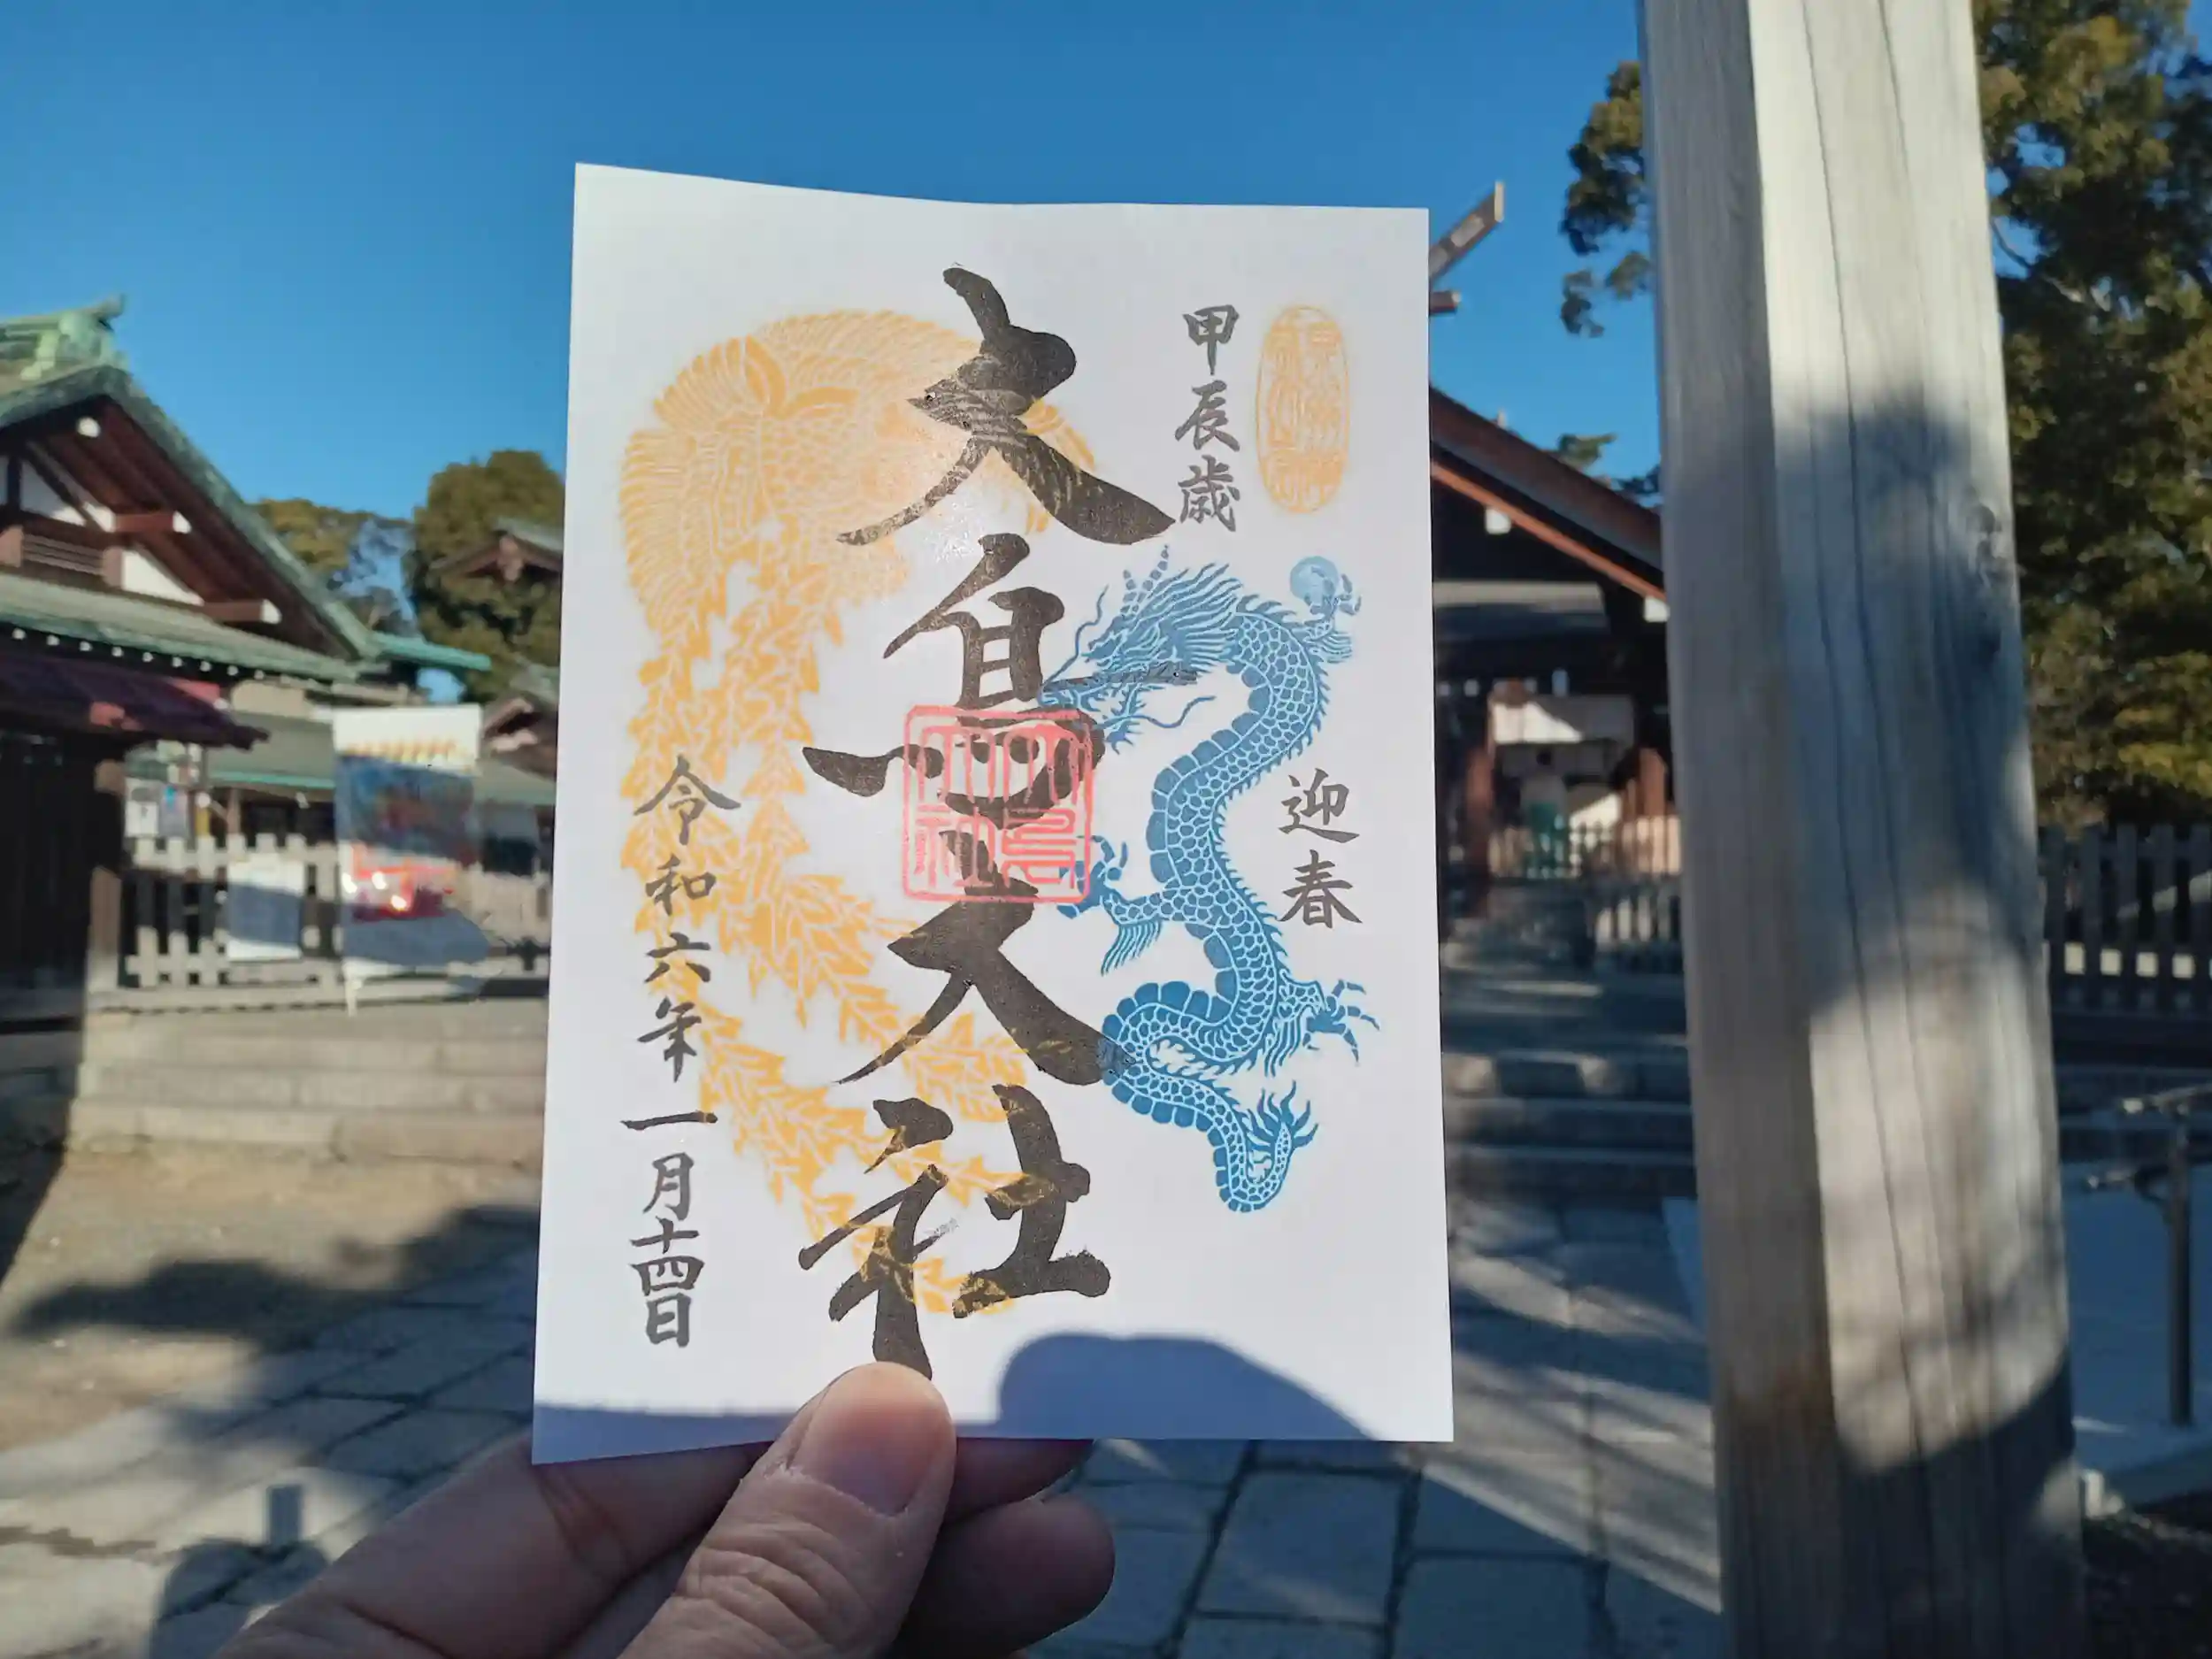 甲辰歳
迎春
大鳥大社
大鳥大社
令和六年一月十四日